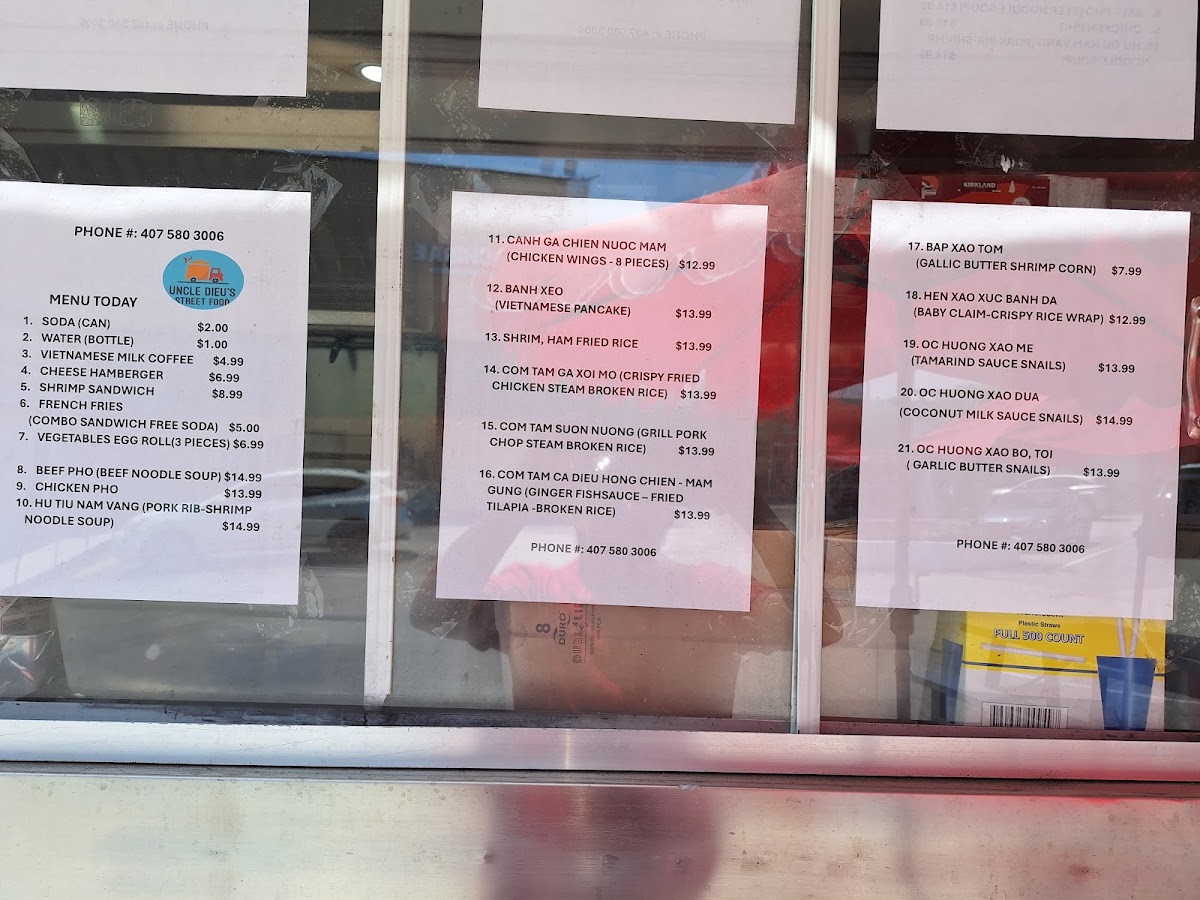 PHONE #: 407 580 3006
PHONE #: 407 580 3006
8. BEEF PHO (BEEF NOODLE SOUP) $14.99
9. CHICKEN PHO $13.99
10. HU TIU NAM VANG (PORK RIB-SHRIMP
NOODLE SOUP) $14.99
PHONE #: 407 580 3006
UNCLE DIEU'S
STREET FOOD
MENU TODAY
1. SODA (CAN) $2.00
2. WATER (BOTTLE) $1.00
3. VIETNAMESE MILK COFFEE $4.99
4. CHEESE HAMBERGER $6.99
5. SHRIMP SANDWICH $8.99
6. FRENCH FRIES
(COMBO SANDWICH FREE SODA) $5.00
7. VEGETABLES EGG ROLL(3 PIECES) $6.99
8. BEEF PHO (BEEF NOODLE SOUP) $14.99
9. CHICKEN PHO $13.99
10. HU TIU NAM VANG (PORK RIB-SHRIMP
NOODLE SOUP) $14.99
11. CANH GA CHIEN NUOC MAM
(CHICKEN WINGS - 8 PIECES) $12.99
12. BANH XEO
(VIETNAMESE PANCAKE) $13.99
13. SHRIM, HAM FRIED RICE $13.99
14. COM TAM GA XOI MO (CRISPY FRIED
CHICKEN STEAM BROKEN RICE) $13.99
15. COM TAM SUON NUONG (GRILL PORK
CHOP STEAM BROKEN RICE) $13.99
16. COM TAM CA DIEU HONG CHIEN - MAM
GUNG (GINGER FISHSAUCE – FRIED
TILAPIA -BROKEN RICE) $13.99
PHONE #: 407 580 3006
17. BAP XAO TOM
(GALLIC BUTTER SHRIMP CORN) $7.99
18. HEN XAO XUC BANH DA
(BABY CLAIM-CRISPY RICE WRAP) $12.99
19. OC HUONG XAO ME
(TAMARIND SAUCE SNAILS) $13.99
20. OC HUONG XAO DUA
(COCONUT MILK SAUCE SNAILS) $14.99
21. OC HUONG XAO BO, TOI
( GARLIC BUTTER SNAILS) $13.99
PHONE #: 407 580 3006
KIRKLAND
8
DURO
Plastic Straws
FULL 500 COUNT